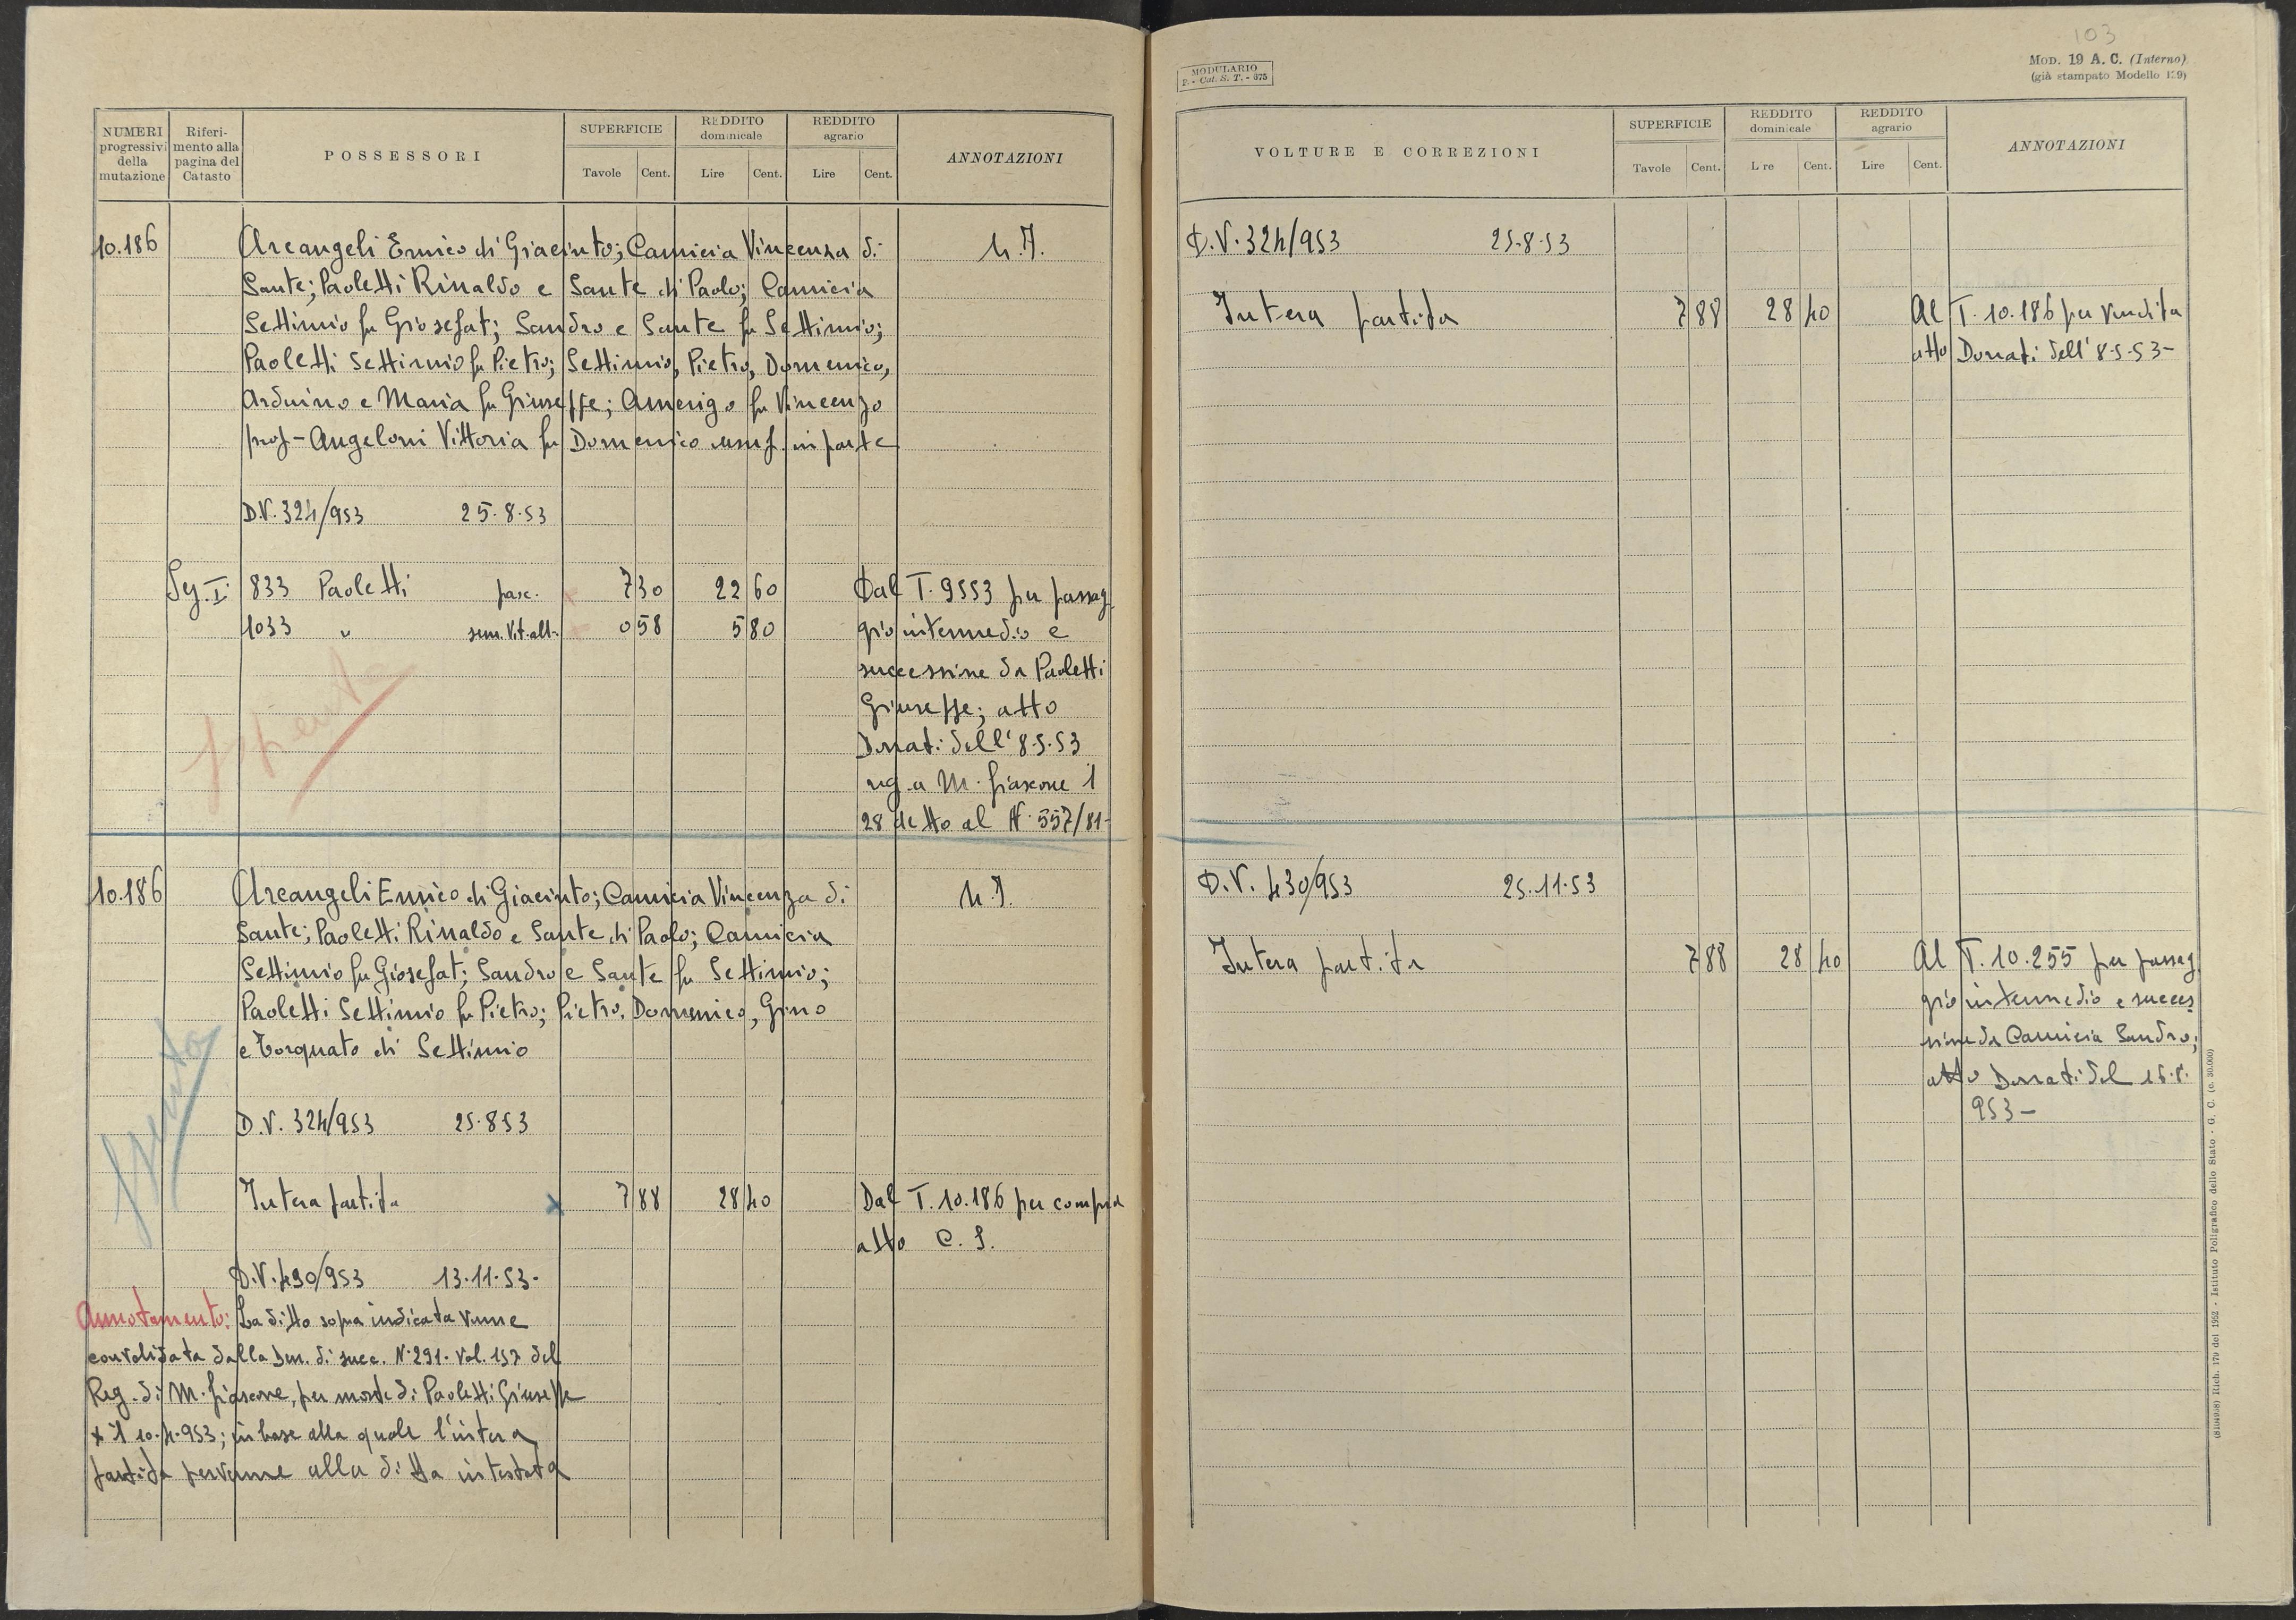 NUMERI progressivi della mutazione
Riferimento alla pagina del Catasto
POSSESSORI
SUPERFICIE
Tavole Cent.
REDDITO dominicale
Lire Cent.
REDDITO agrario
Lire Cent.
ANNOTAZIONI
10.186 Arcangeli Enrico di Giacinto; Camicia Vincenza di
Sante; Paoletti Rinaldo e Sante di Paolo; Camicia
Settimio fu Giosefat; Sandro e Sante fu Settimio;
Paoletti Settimio fu Pietro; Settimio, Pietro, Domenico,
Arduino e Maria fu Giuseppe; Amerigo fu Vincenzo
prop- Angeloni Vittoria fu Domenico usuf. in parte
D.V. 324/953 25-8-53
Sez. I. 833 Paoletti pasc. 7 30 22 60 Dal T. 9553 per passag
1033 " sem. Vit. all. 0 58 5 80 gio intermedio e
successione da Paoletti
Giuseppe; atto
Donati dell' 8-5-53
reg. a M. fiascone 1
28 detto al N. 557/81-
10.186 Arcangeli Enrico di Giacinto; Camicia Vincenza di
Sante; Paoletti Rinaldo e Sante di Paolo; Camicia
Settimio fu Giosefat; Sandro e Sante fu Settimio;
Paoletti Settimio fu Pietro; Pietro, Domenico, Gino
e Torquato di Settimio
D.V. 324/953 25-8 53
Intera partita x 7 88 28 40 Dal T. 10.186 per compra
atto C. S.
D.V. 430/953 13-11-53-
Annotamento: La ditta sopra indicata venne
convalidata dalla Den. di succ. N. 291- Vol. 157 del
Reg. di M. fiascone, per morte di Paoletti Giuseppe
+ il 10-4-953; in base alla quale l'intera
partita pervenne alla ditta intestata
103
MODULARIO
F. - Cat. S. T. - 675
MOD. 19 A. C. (Interno)
(già stampato Modello 129)
VOLTURE E CORREZIONI
SUPERFICIE
Tavole Cent.
REDDITO dominicale
Lire Cent.
REDDITO agrario
Lire Cent.
ANNOTAZIONI
D.V. 324/953 25-8-53
Intera partita 7 88 28 40 Al T. 10.186 per vendita
atto Donati dell' 8-5-53-
D.V. 430/953 25-11-53
Intera partita 7 88 28 40 Al T. 10.255 per passag
gio intermedio e succes
sione da Camicia Sandro;
atto Donati del
953-
Istituto Poligrafico dello Stato - G. C. (c. 30.000)